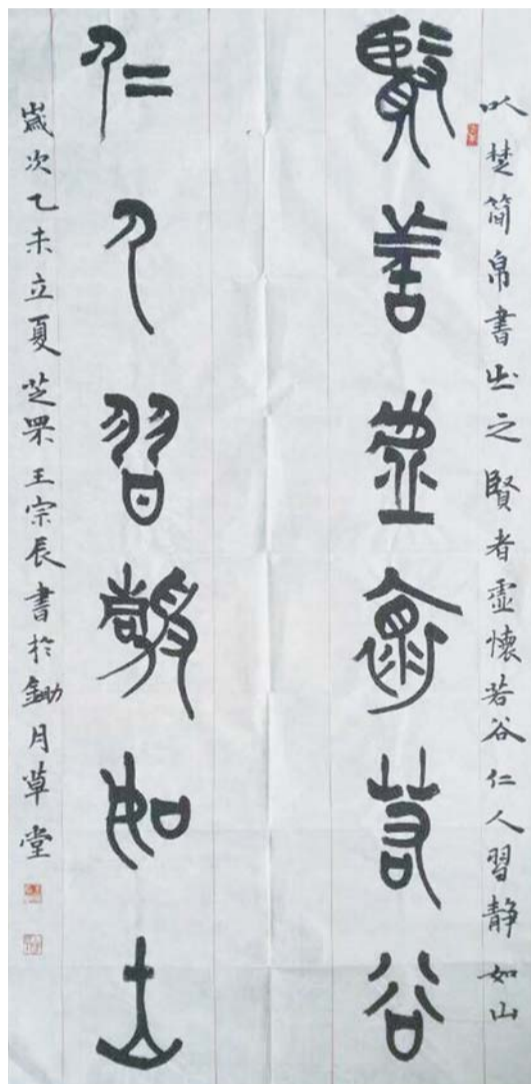 以楚简帛書出之賢者虛懷若谷仁人習静如山
賢者虛懷若谷
仁人習静如山
歲次乙未立夏芝罘王宗辰書於鋤月草堂